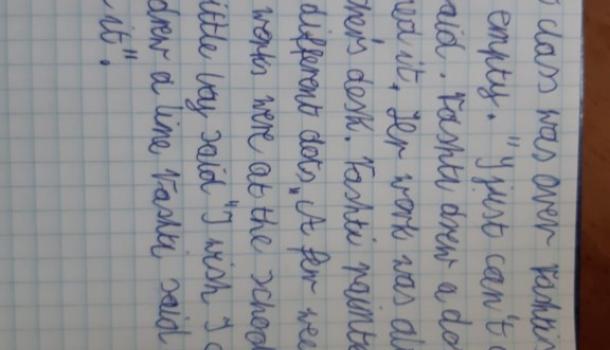 class was over Vashti's
empty. "I just can't
aid. Vashti drew a do
ned it. Her work was
her's desk. Vashti painte
different dots". A few wee
works were at the school
ittle boy said "I wish I
drew a line Vashti said
it".